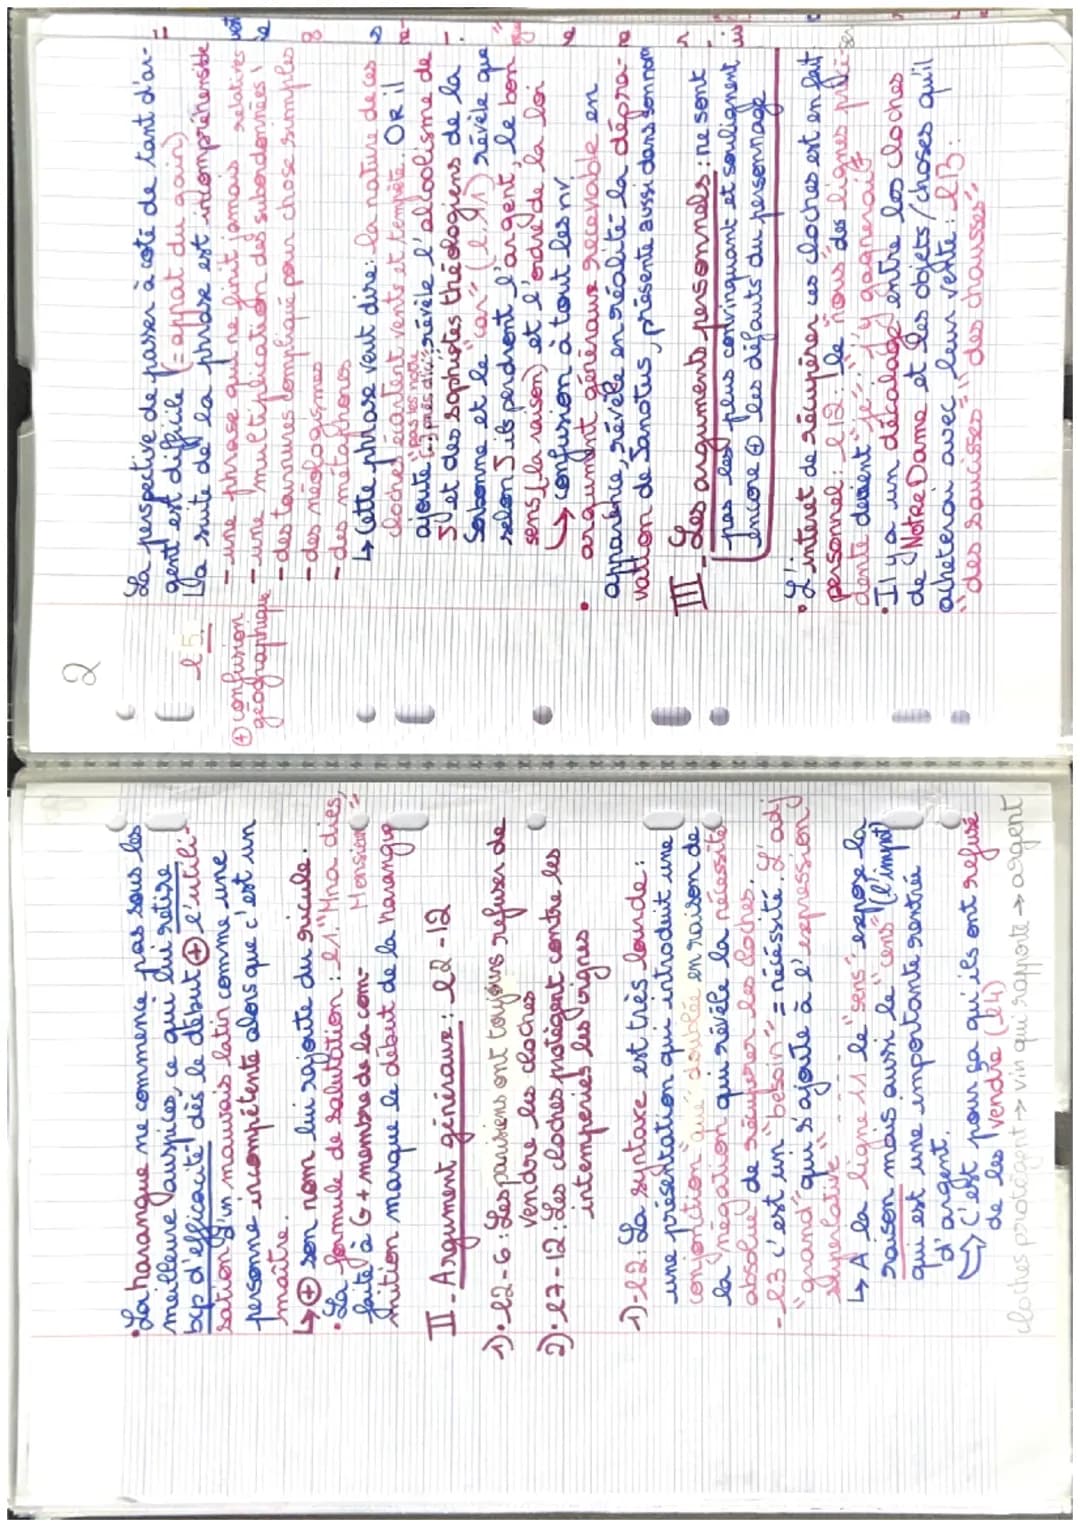 • La harangue ne commence pas sous les
meilleure auspices, ce qui lui retire
bcp d'efficacité dès le début ⊕ l'utili-
sation d'un mauvais latin comme une
personne incompétente alors que c'est un
maître.
↳ ⊕ son nom lui rajoute du ricule.
• La formule de salutation : l1. "Mna dies,
faite à G + membre de la com- Monsieur"
mution marque le début de la harangue
II - Argument généraux : l2 - 12
1) • l2 - 6 : Les parisiens ont toujours refuser de
vendre les cloches
2) • l7 - 12 : Les cloches protègent contre les
intempéries les vignes
1) - l2 : La syntaxe est très lourde :
une présentation qui introduit une
conjonction "que" doublée en raison de
la négation qui révèle la nécessité
absolue de récupérer les cloches.
- l3 c'est un "besoin" = nécéssité. L'adj
"grand" qui s'ajoute à l'expression
superlative"
↳ A la ligne 11 le "sens" expose la
raison mais aussi le "cens" (l'impot)
qui est une importante rentrée
d'argent.
↪ C'est pour ça qu'ils ont refusé
de les vendre (l4)
cloches protègent → vin qui rapporte → argent
2
La perspective de passer à coté de tant d'ar-
gent est difficile (= appat du gain)
l 5. ↳ la suite de la phrase est incompréhensible
- une phrase qui ne finit jamais relatives
⊕ confusion géographique - une multiplication des subordonnées
- des tournures compliqué pour chose simples
- des néologismes
- des métaphores
↳ Cette phrase veut dire : la nature de ces
cloches écartent vents et tempête. OR il
ajoute révèle l'alcoolisme de
J et des sophistes théologiens de la
Sorbonne et le "car" (l,11) révèle que
selon J ils perdront l'argent, le bon
sens (la raison) et l'ordre de la loi
↪ confusion à tout les nv.
• argument généraux recevable en
apparence, révèle en réalité la dépra-
vation de Janotus, présente aussi dans son nom
III - Les arguments personnels : ne sont
pas les plus convainquant et soulignent
encore ⊕ les défauts du personnage
• L'interet de récupérer ces cloches est en fait
personnel : l12 : le "nous" des lignes précé-
dente devient "je" : "j'y gagnerai"
• Il y a un décalage entre les cloches
de Notre Dame et les objets/choses qu'il
acheterai avec leur vente : l13 :
"des saucisses" "des chausses"